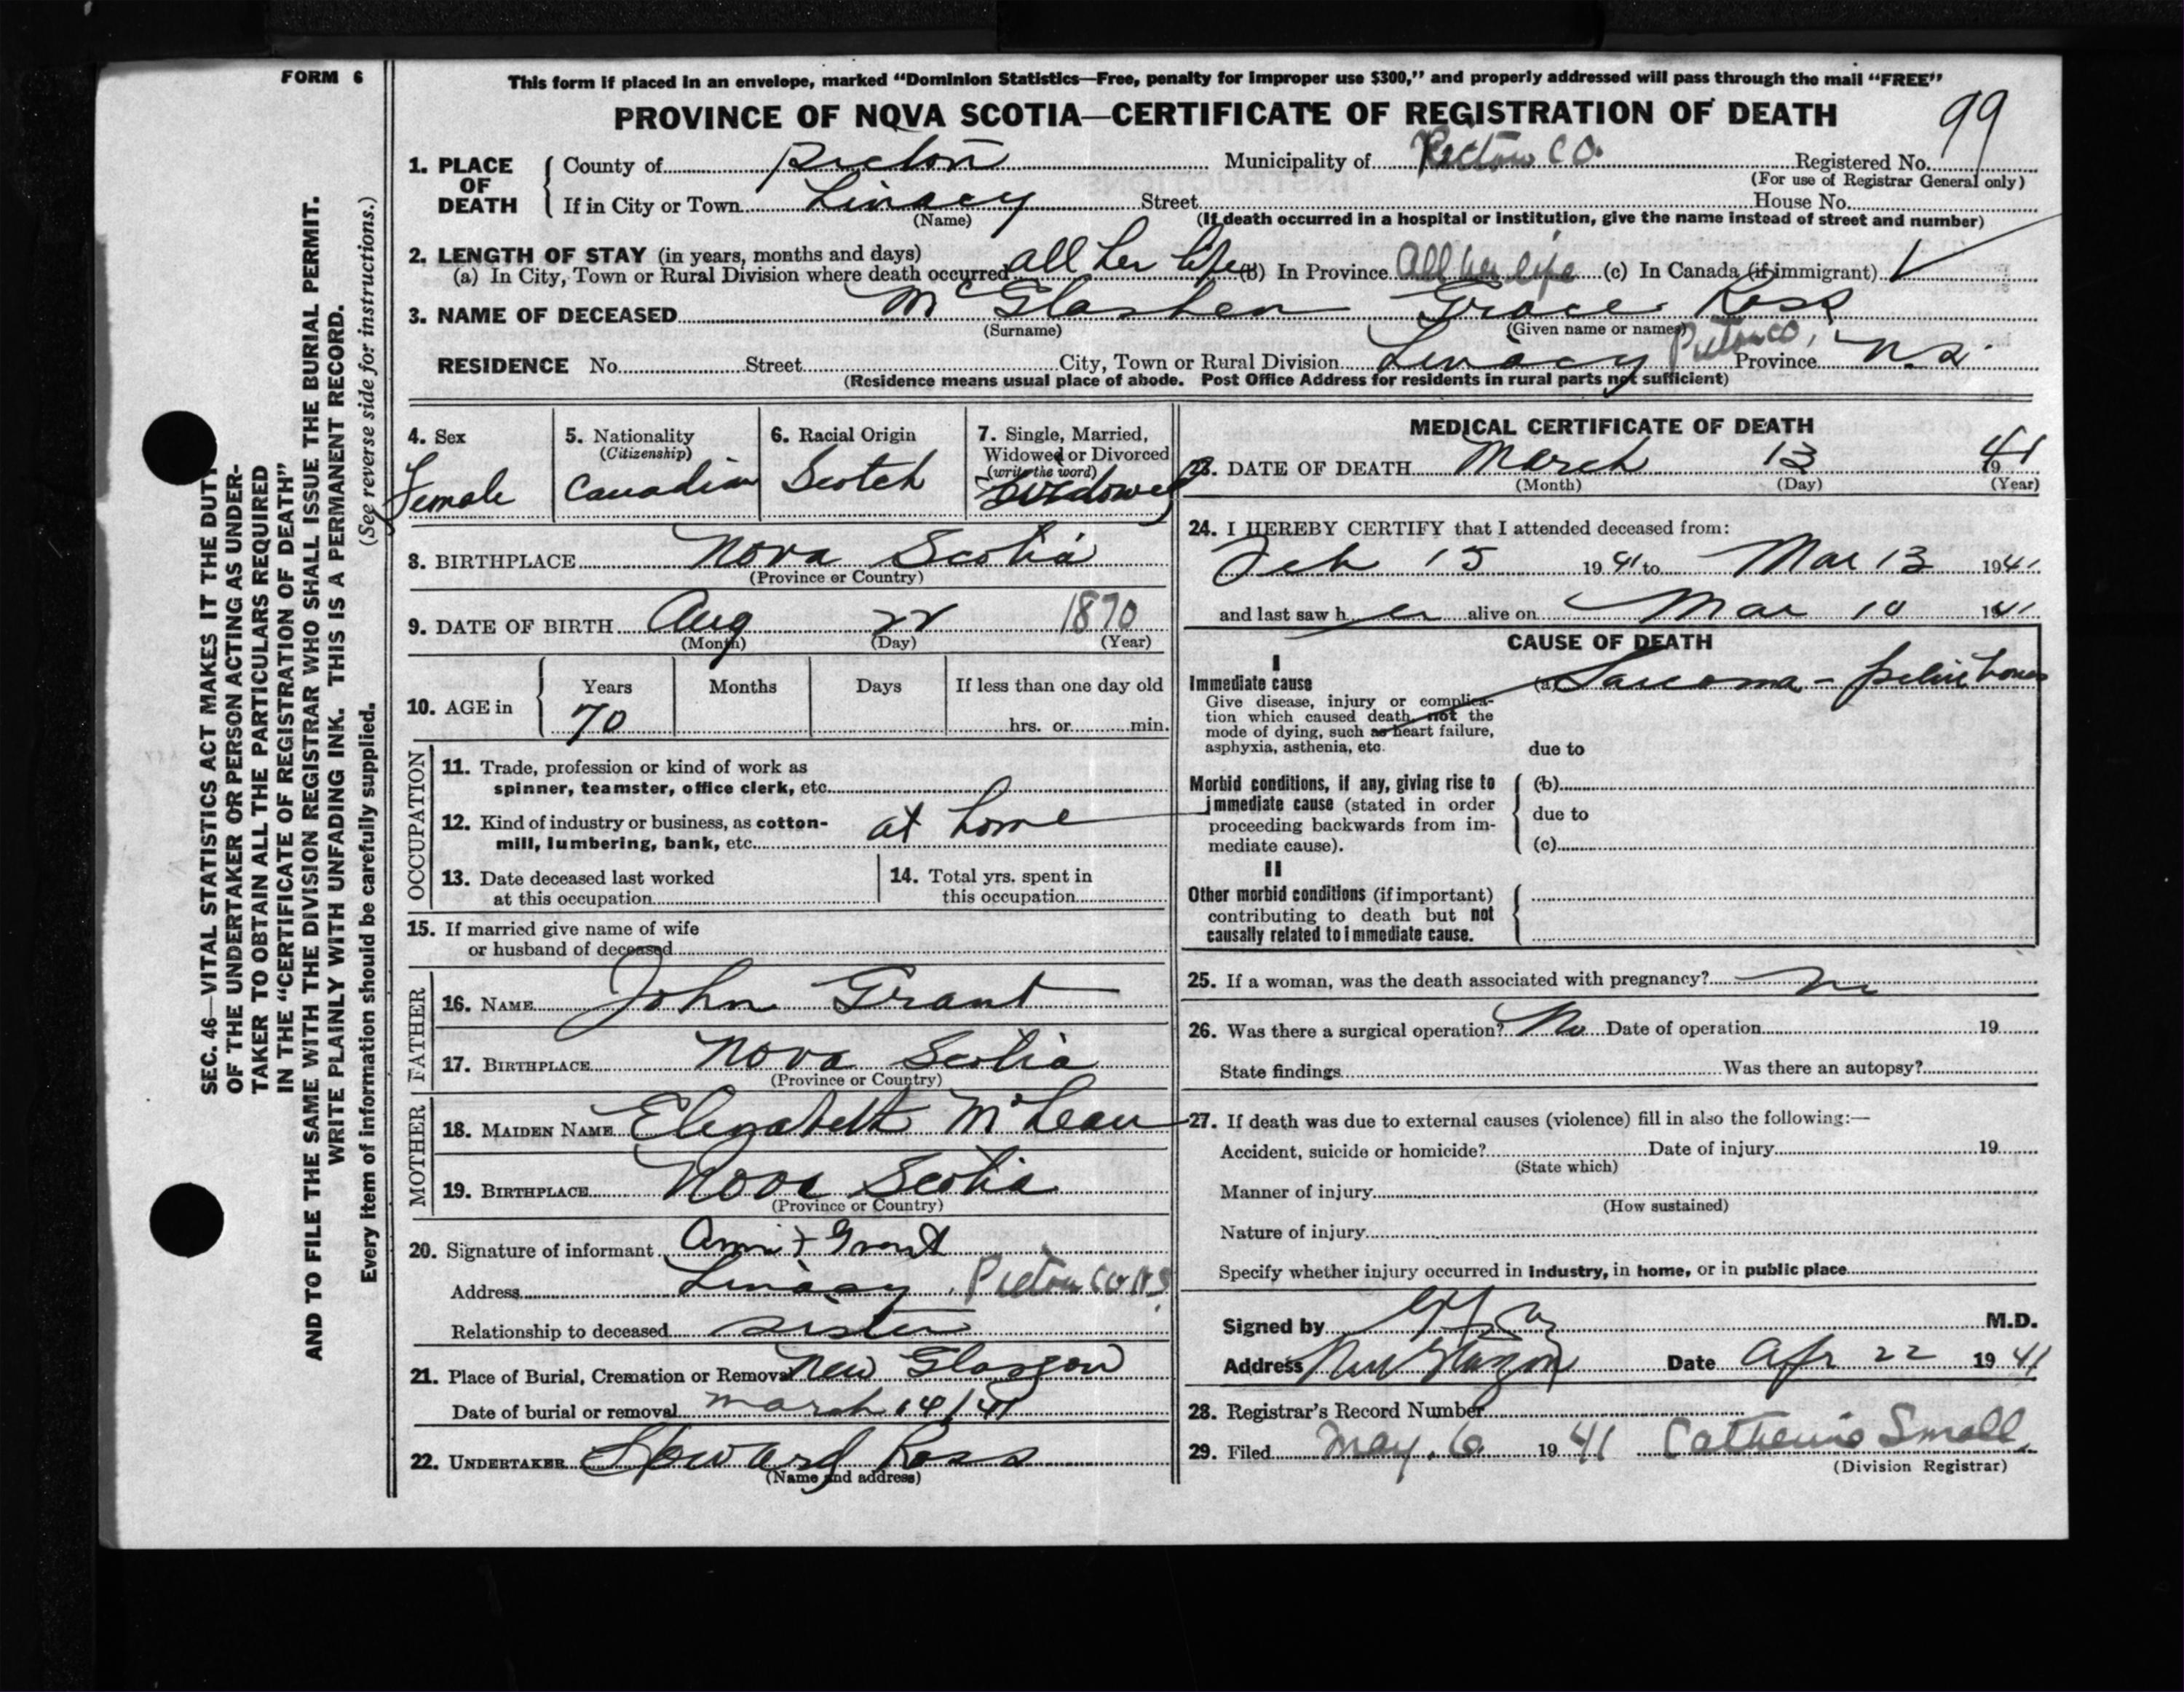 FORM 6
This form if placed in an envelope, marked “Dominion Statistics—Free, penalty for improper use $300,” and properly addressed will pass through the mail “FREE”
PROVINCE OF NOVA SCOTIA—CERTIFICATE OF REGISTRATION OF DEATH
99
1. PLACE OF DEATH
County of Pictou Municipality of Pictou Co. Registered No.
(For use of Registrar General only)
If in City or Town Linacy Street House No.
(Name) (If death occurred in a hospital or institution, give the name instead of street and number)
2. LENGTH OF STAY (in years, months and days)
(a) In City, Town or Rural Division where death occurred all her life (b) In Province All her life (c) In Canada (if immigrant)
3. NAME OF DECEASED McGlashen Grace Ross
(Surname) (Given name or names)
RESIDENCE No. Street City, Town or Rural Division Linacy Pictou Co, Province N.S.
(Residence means usual place of abode. Post Office Address for residents in rural parts not sufficient)
SEC. 46—VITAL STATISTICS ACT MAKES IT THE DUTY
OF THE UNDERTAKER OR PERSON ACTING AS UNDER-
TAKER TO OBTAIN ALL THE PARTICULARS REQUIRED
IN THE “CERTIFICATE OF REGISTRATION OF DEATH”
AND TO FILE THE SAME WITH THE DIVISION REGISTRAR WHO SHALL ISSUE THE BURIAL PERMIT.
WRITE PLAINLY WITH UNFADING INK. THIS IS A PERMANENT RECORD.
Every item of information should be carefully supplied. (See reverse side for instructions.)
4. Sex
Female
5. Nationality
(Citizenship)
Canadian
6. Racial Origin
Scotch
7. Single, Married,
Widowed or Divorced
(write the word)
Widowed
8. BIRTHPLACE Nova Scotia
(Province or Country)
9. DATE OF BIRTH Aug 22 1870
(Month) (Day) (Year)
10. AGE in
Years Months Days If less than one day old
70 hrs. or min.
OCCUPATION
11. Trade, profession or kind of work as
spinner, teamster, office clerk, etc.
12. Kind of industry or business, as cotton-
mill, lumbering, bank, etc. at home
13. Date deceased last worked
at this occupation
14. Total yrs. spent in
this occupation
15. If married give name of wife
or husband of deceased
FATHER
16. NAME John Grant
17. BIRTHPLACE Nova Scotia
(Province or Country)
MOTHER
18. MAIDEN NAME Elizabeth McLean
19. BIRTHPLACE Nova Scotia
(Province or Country)
20. Signature of informant Grant
Address Linacy, Pictou Co N.S.
Relationship to deceased sister
21. Place of Burial, Cremation or Removal New Glasgow
Date of burial or removal March 14/41
22. UNDERTAKER Howard Ross
(Name and address)
MEDICAL CERTIFICATE OF DEATH
23. DATE OF DEATH March 13 1941
(Month) (Day) (Year)
24. I HEREBY CERTIFY that I attended deceased from:
Feb 15 1941 to Mar 13 1941
and last saw her alive on Mar 10 1941
CAUSE OF DEATH
I
Immediate cause (a) Sarcoma - pelvic bones
Give disease, injury or complica-
tion which caused death, not the
mode of dying, such as heart failure,
asphyxia, asthenia, etc. due to
Morbid conditions, if any, giving rise to (b)
immediate cause (stated in order due to
proceeding backwards from im-
mediate cause). (c)
II
Other morbid conditions (if important)
contributing to death but not
causally related to immediate cause.
25. If a woman, was the death associated with pregnancy? No
26. Was there a surgical operation? No Date of operation 19
State findings Was there an autopsy?
27. If death was due to external causes (violence) fill in also the following:—
Accident, suicide or homicide? Date of injury 19
(State which)
Manner of injury
(How sustained)
Nature of injury
Specify whether injury occurred in industry, in home, or in public place
Signed by M.D.
Address New Glasgow Date Apr 22 1941
28. Registrar's Record Number
29. Filed May. 6 1941 Catherine Small
(Division Registrar)